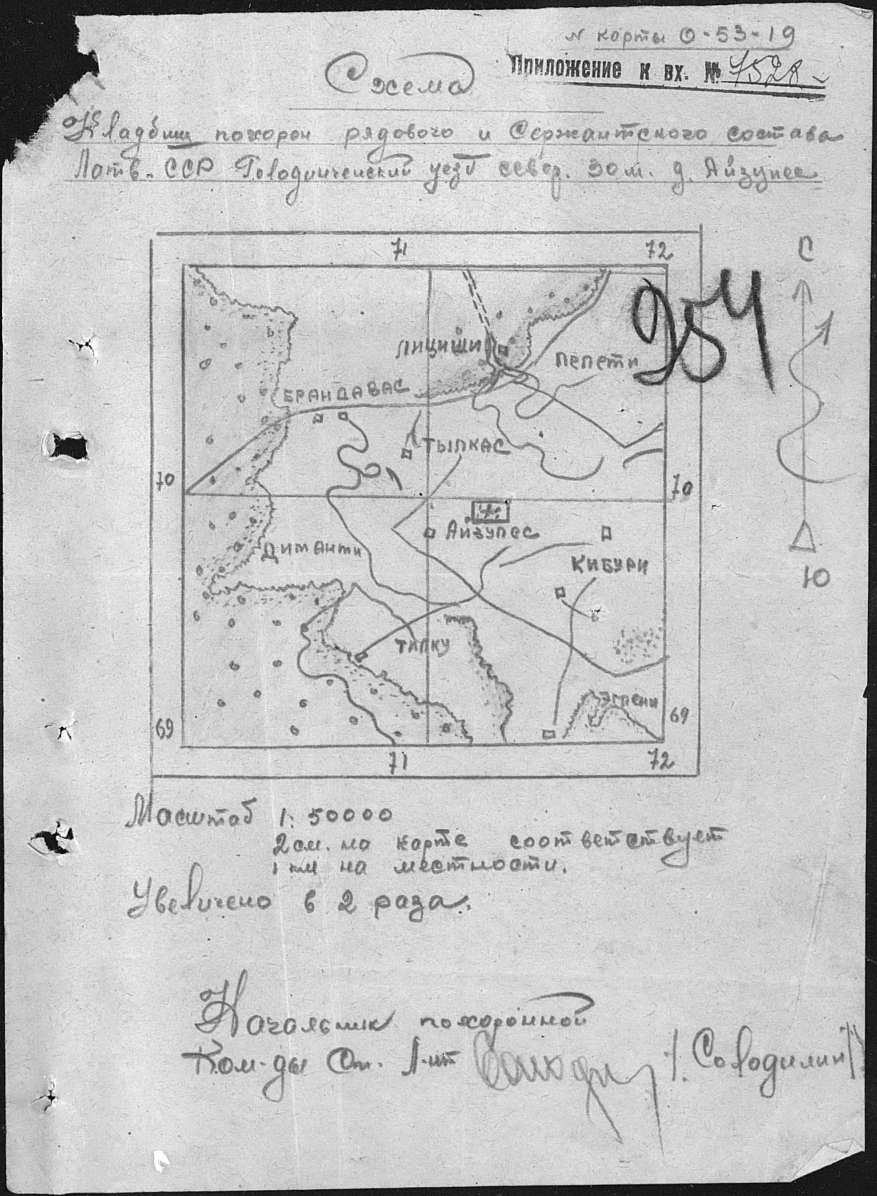 N карты О-53-19
Приложение к вх. №
Схема
Кладбищ похорон рядового и Сержантского состава
Латв. ССР уезд север. 30 м. д. Айзупес
71 72
954
С
Лициши
Пепети
Брандавас
Тылкас
70 70
Айзупес
Диманти
Кибури
Ю
Тилку
69 69
71 72
Масштаб 1: 50000
2 см. на карте соответствует
1 км на местности.
Увеличено в 2 раза.
Начальник похоронной
Ком-ды Ст. Л-нт